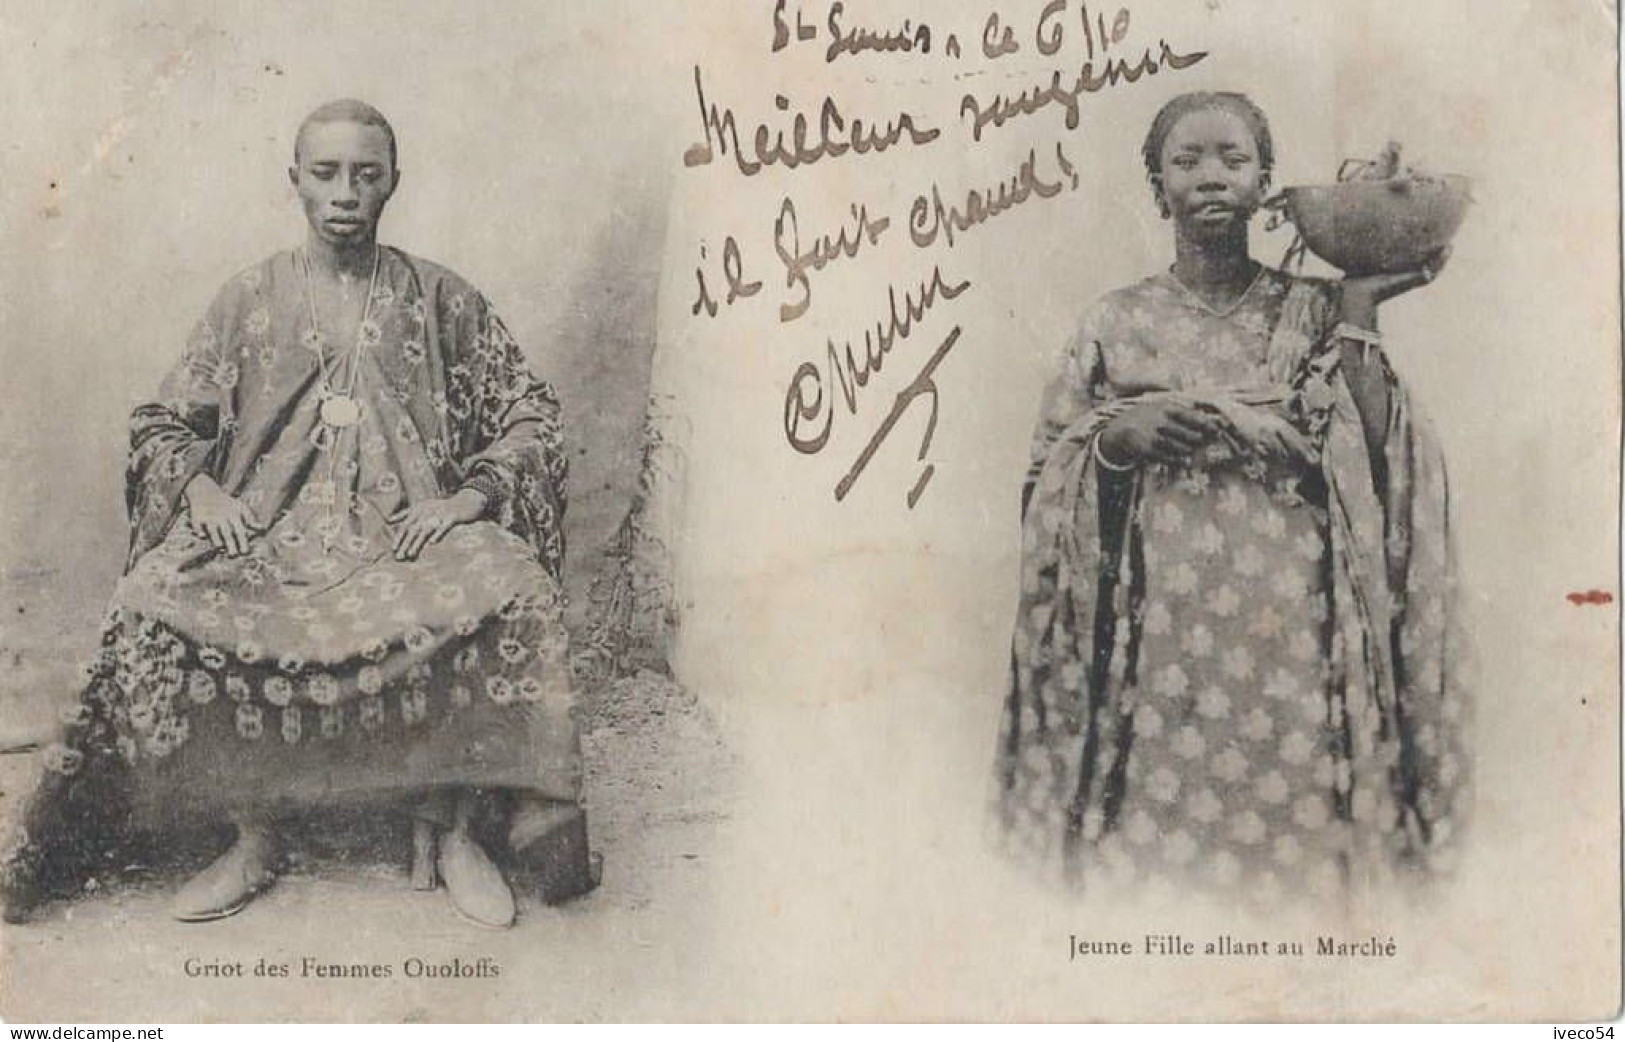 St Louis, le 6/10
Meilleur souvenir
il fait chaud!
Griot des Femmes Ouoloffs
Jeune Fille allant au Marché
www.delcampe.net
iveco54